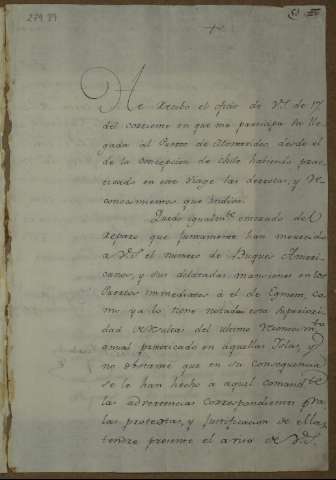 He recibo el oficio de V.S. de 17
del corriente en que me participa su lle-
gada al Puerto de Montevideo desde el
de la Concepcion de Chile habiendo prac-
ticado en este Viage las derrotas, y re-
conocimientos que indica.
Quedo igualmte. enterado del
reparo que justamente han merecido
a V.S. el numero de Buques Americ-
anos, y sus dilatadas mansiones en los
Puertos inmediatos á el de Egmont, co-
mo ya lo tiene notado esta Superiori-
dad de resultas del ultimo reconocimto.
anual practicado en aquellas Islas, y
no obstante que en su consequencia
se le han hecho a aquel Comandte.
las advertencias correspondientes pa.
las protestas, y justificacion de ellas
tendre presente el aviso de V.S.